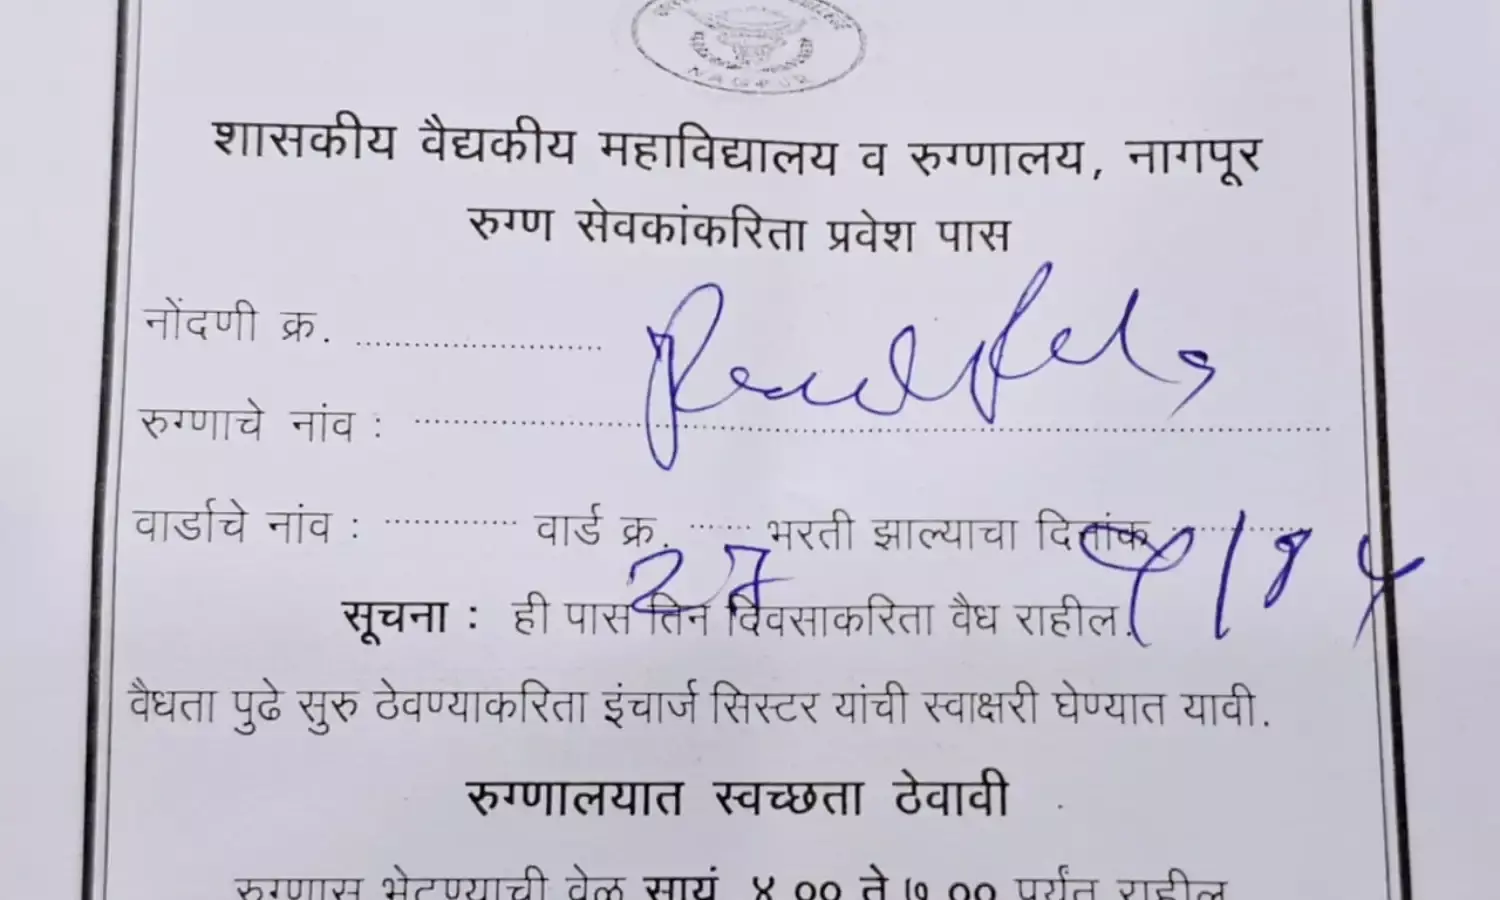 NAGPUR
शासकीय वैद्यकीय महाविद्यालय व रुग्णालय, नागपूर
रुग्ण सेवकांकरिता प्रवेश पास
नोंदणी क्र. ........................
रुग्णाचे नांव :
वार्डाचे नांव : ............... वार्ड क्र. ...... भरती झाल्याचा दिनांक ............
27
सूचना : ही पास तिन दिवसाकरिता वैध राहील.
वैधता पुढे सुरु ठेवण्याकरिता इंचार्ज सिस्टर यांची स्वाक्षरी घेण्यात यावी.
रुग्णालयात स्वच्छता ठेवावी
रुग्णास भेटण्याची वेळ सायं. ४.०० ते ७.०० पर्यंत राहील